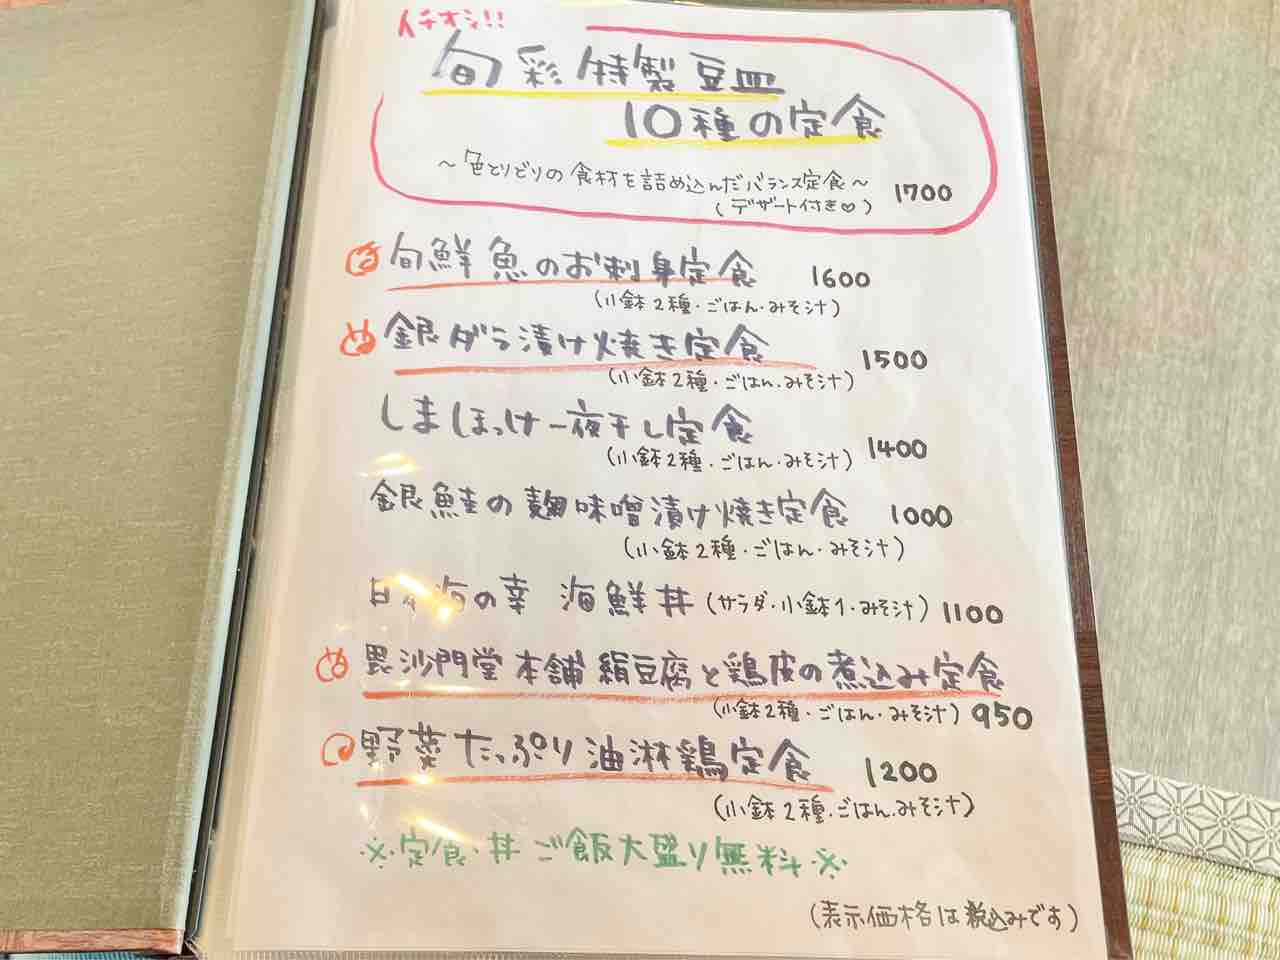 イチオシ!!
旬彩特製豆皿
10種の定食
～色とりどりの食材を詰め込んだバランス定食～
(デザート付き♡) 1700
旬鮮魚のお刺身定食 1600
(小鉢2種・ごはん・みそ汁)
銀ダラ漬け焼き定食 1500
(小鉢2種・ごはん・みそ汁)
しまほっけ一夜干し定食 1400
(小鉢2種・ごはん・みそ汁)
銀鮭の麹味噌漬け焼き定食 1000
(小鉢2種・ごはん・みそ汁)
日本海の幸 海鮮丼(サラダ・小鉢1・みそ汁) 1100
毘沙門堂本舗絹豆腐と鶏皮の煮込み定食
(小鉢2種・ごはん・みそ汁) 950
野菜たっぷり油淋鶏定食 1200
(小鉢2種・ごはん・みそ汁)
※定食・丼 ご飯大盛り無料※
(表示価格は税込みです)